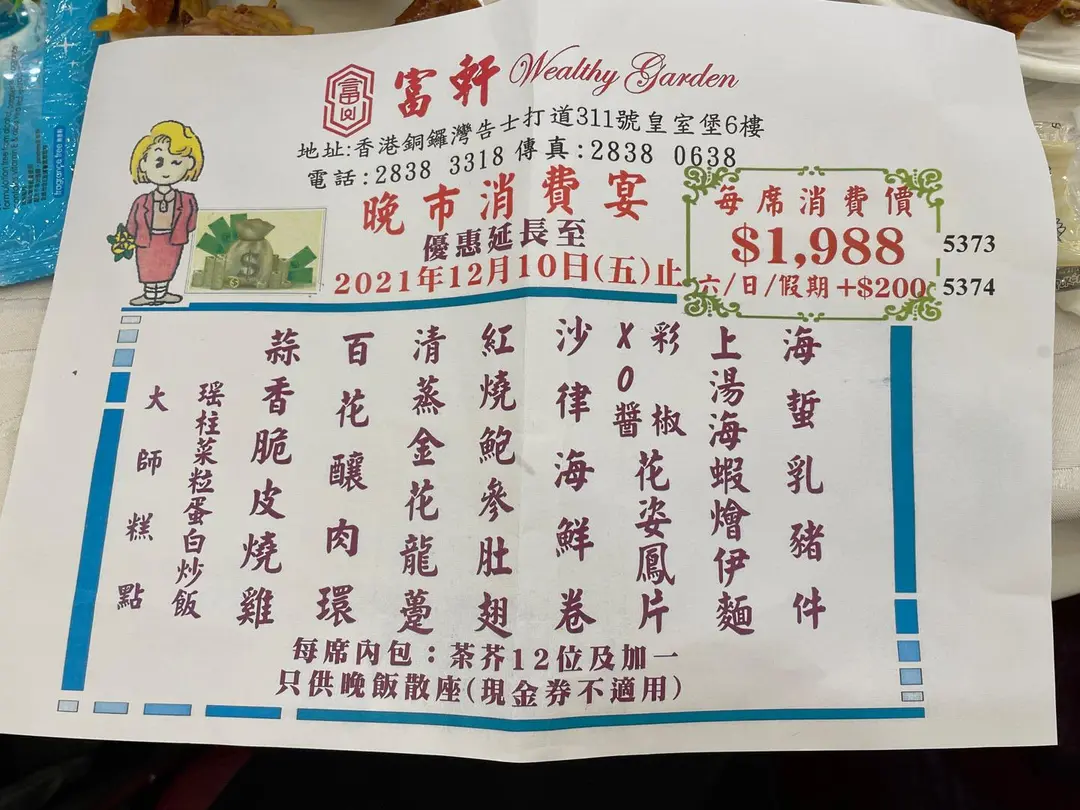 富軒 Wealthy Garden
地址:香港銅鑼灣告士打道311號皇室堡6樓
電話:2838 3318 傳真:2838 0638
晚市消費宴
優惠延長至
2021年12月10日(五)止
每席消費價
$1,988
六/日/假期+$200
5373
5374
海蜇乳豬件
上湯海蝦燴伊麵
XO醬彩椒花姿鳳片
沙律海鮮卷
紅燒鮑參肚翅
清蒸金花龍躉
百花釀肉環
蒜香脆皮燒雞
瑤柱菜粒蛋白炒飯
大師糕點
每席內包：茶芥12位及加一
只供晚飯散座(現金券不適用)
fragrance free